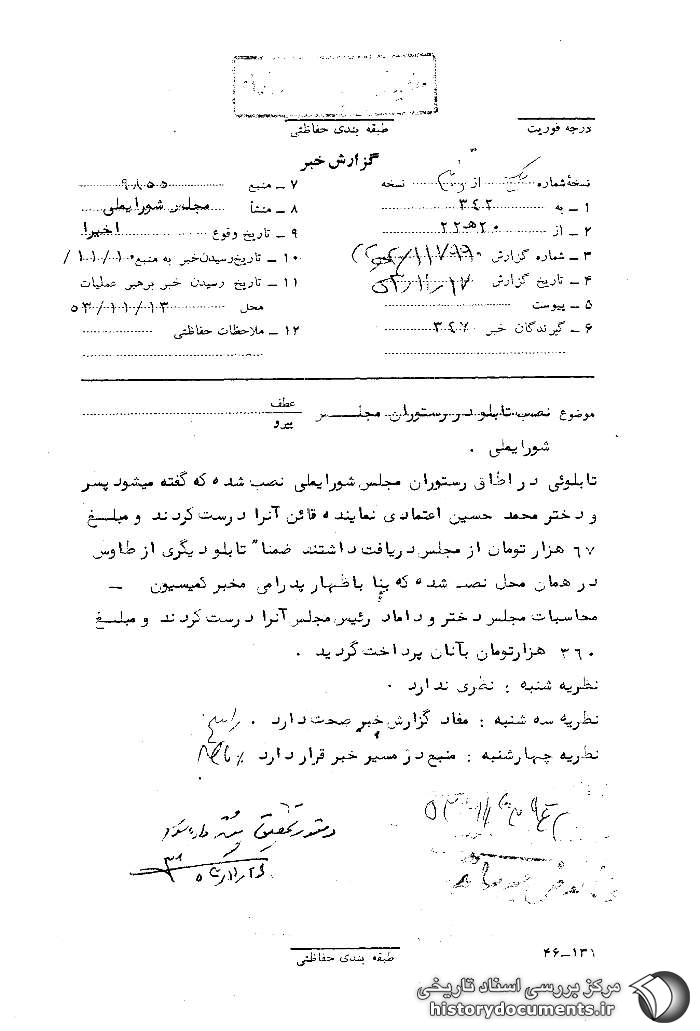 طبقه بندی حفاظتی
درجه فوریت
گزارش خبر
نسخهٔ شماره یک از نسخه
۱ ـ به ۳۴۲
۲ ـ از ۲۰ه۲۲
۳ ـ شماره گزارش
۴ ـ تاریخ گزارش
۵ ـ پیوست
۶ ـ گیرندگان خبر ۳۴۷
۷ ـ منبع ۹۸۵۵
۸ ـ منشأ مجلس شورایملی
۹ ـ تاریخ وقوع اخیرا
۱۰ ـ تاریخ رسیدن خبر به منبع
۱۱ ـ تاریخ رسیدن خبر برهبر عملیات
محل ۵۳/۱۱/۱۳
۱۲ ـ ملاحظات حفاظتی
موضوع نصب تابلو در رستوران مجلس
عطف
پیرو
شورایملی .
تابلوئی در اطاق رستوران مجلس شورایملی نصب شده که گفته میشود پسر
و دختر محمد حسین اعتمادی نماینده قائن آنرا درست کردند و مبلغ
۶۷ هزار تومان از مجلس دریافت داشتند ضمنا" تابلو دیگری از طاوس
در همان محل نصب شده که بنا باظهار پدرامی مخبر کمیسیون ـ
محاسبات مجلس دختر و داماد رئیس مجلس آنرا درست کردند و مبلغ
۳۶۰ هزارتومان بآنان پرداخت گردید .
نظریه شنبه : نظری ندارد .
نظریه سه شنبه : مفاد گزارش خبر صحت دارد .
نظریه چهارشنبه : منبع در مسیر خبر قرار دارد
دستور تحقیق
۴۶ـ۱۳۱
طبقه بندی حفاظتی
مرکز بررسی اسناد تاریخی
historydocuments.ir